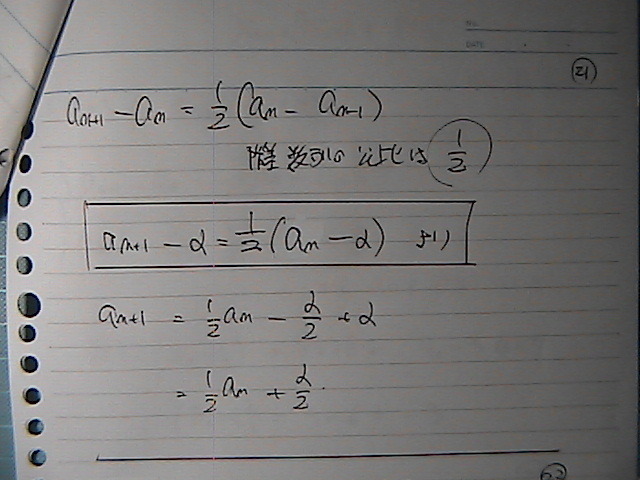 NO.
DATE
21
a_{n+1} - a_n = \frac{1}{2}(a_n - a_{n-1})
階差数列の公比は \frac{1}{2}
a_{n+1} - α = \frac{1}{2}(a_n - α) より
a_{n+1} = \frac{1}{2}a_n - \frac{α}{2} + α
= \frac{1}{2}a_n + \frac{α}{2}.